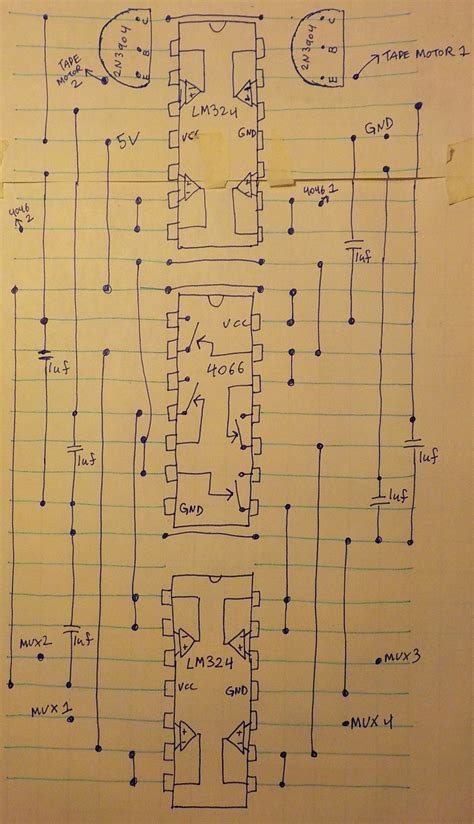 2N3904
C
B
E
TAPE
MOTOR
2
2N3904
C
B
E
TAPE MOTOR 1
LM324
5V
VCC
GND
GND
4046
2
4046 1
1uf
VCC
1uf
4066
1uf
1uf
1uf
GND
1uf
MUX2
LM324
MUX3
VCC
GND
MUX1
MUX4